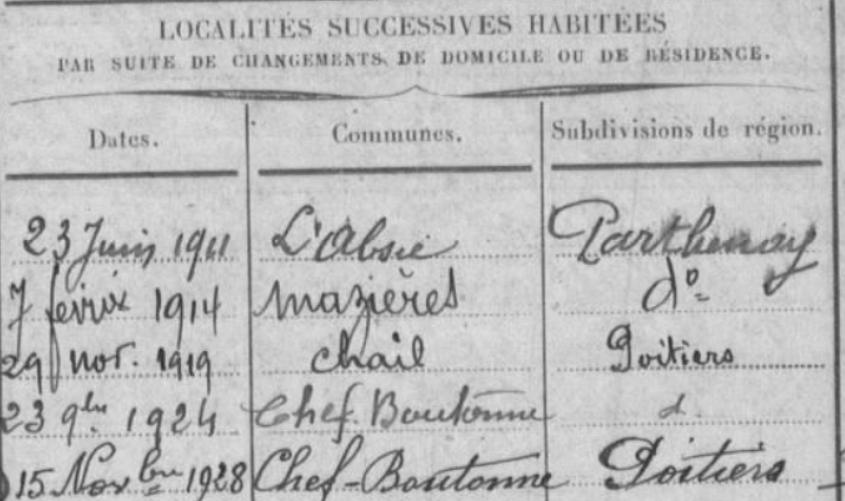 LOCALITÉS SUCCESSIVES HABITÉES
PAR SUITE DE CHANGEMENTS DE DOMICILE OU DE RÉSIDENCE.
Dates. Communes. Subdivisions de région.
23 Juin 1911 L'Absie Parthenay
7 février 1914 Mazières do
29 nov. 1919 Chail Poitiers
23 9bre 1924 Chef Boutonne d
15 Novbre 1928 Chef-Boutonne Poitiers